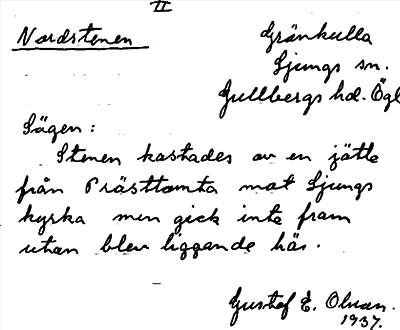 II
Nordstenen
Gränkulla
Ljungs sn.
Gullbergs hd. Ögl
Sägen:
Stenen kastades av en jätte
från Prästtomta mot Ljungs
kyrka men gick inte fram
utan blev liggande här.
Gustaf E. Olsson.
1937.